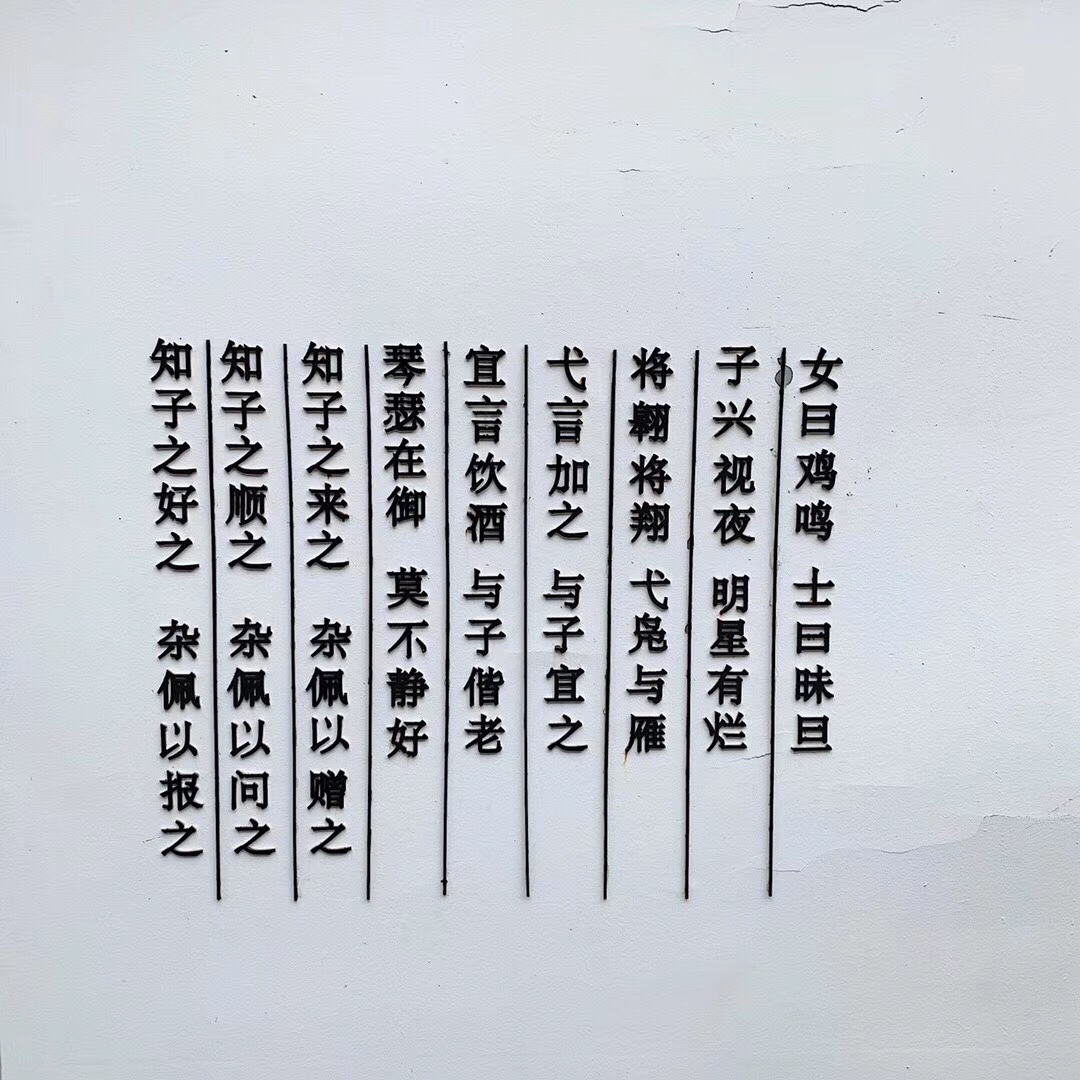 女曰鸡鸣 士曰昧旦
子兴视夜 明星有烂
将翱将翔 弋凫与雁
弋言加之 与子宜之
宜言饮酒 与子偕老
琴瑟在御 莫不静好
知子之来之 杂佩以赠之
知子之顺之 杂佩以问之
知子之好之 杂佩以报之